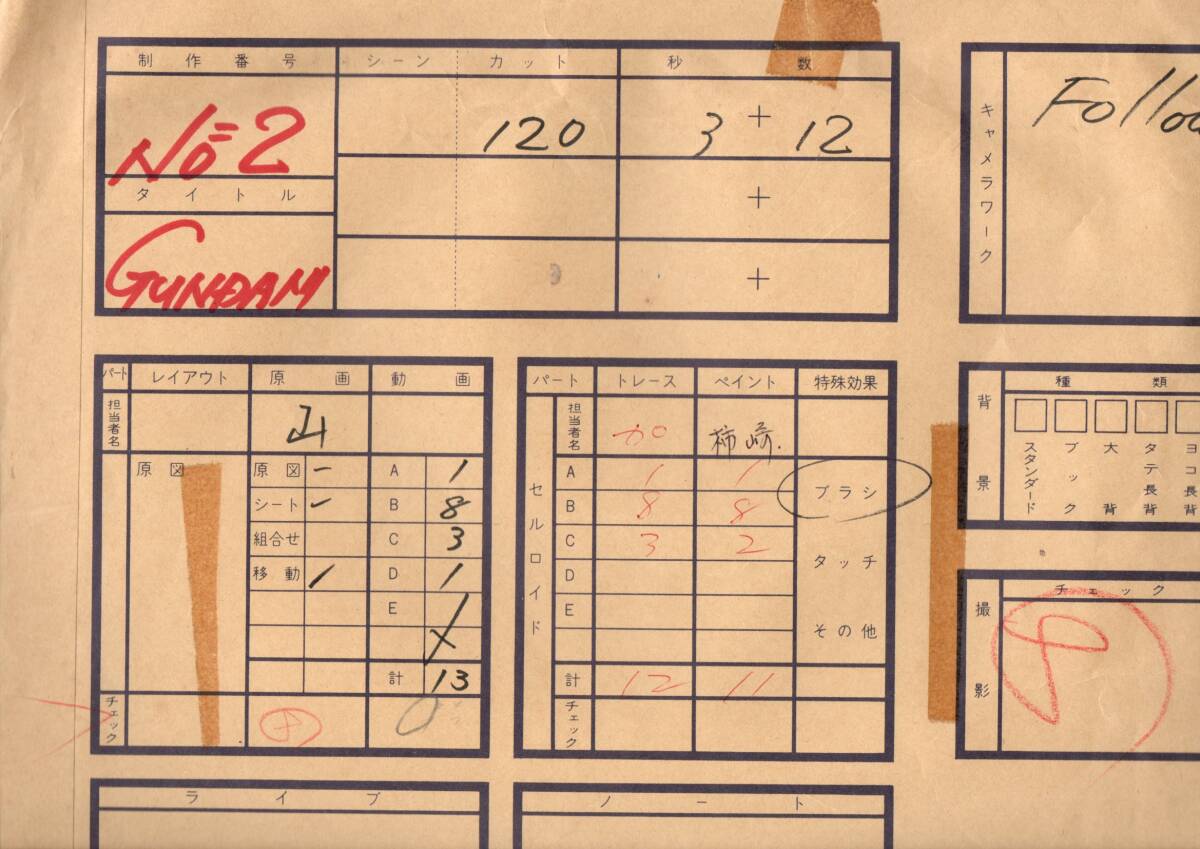 制作番号 シーン カット 秒 数
No.2 120 3 + 12
タイトル +
GUNDAM +
キャメラワーク
パート レイアウト 原画 動画
担当者名 山
原図 原図 一 A 1
シート 一 B 8
組合せ C 3
移動 / D 1
E
計 13
チェック
パート トレース ペイント 特殊効果
担当者名 加 柿崎.
セルロイド
A 1 1
B 8 8 ブラシ
C 3 2
D タッチ
E
その他
計 12 11
チェック
背景 種類
スタンダード ブック 大背 タテ長背 ヨコ長背
撮影 チェック
ライブ
ノート